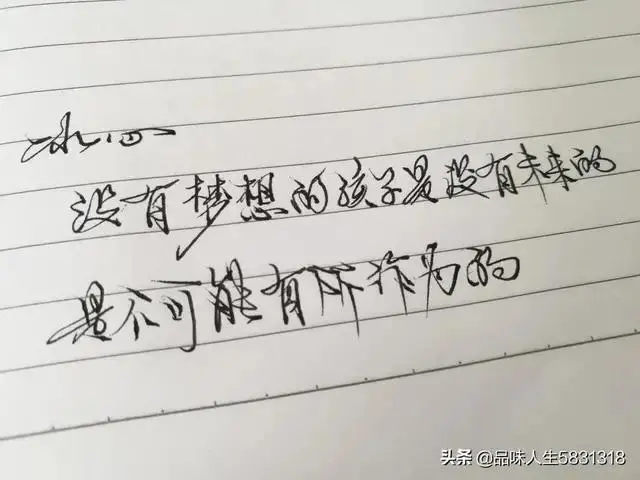 冰心
没有梦想的孩子是没有未来的
是不可能有所作为的
头条 @品味人生5831318